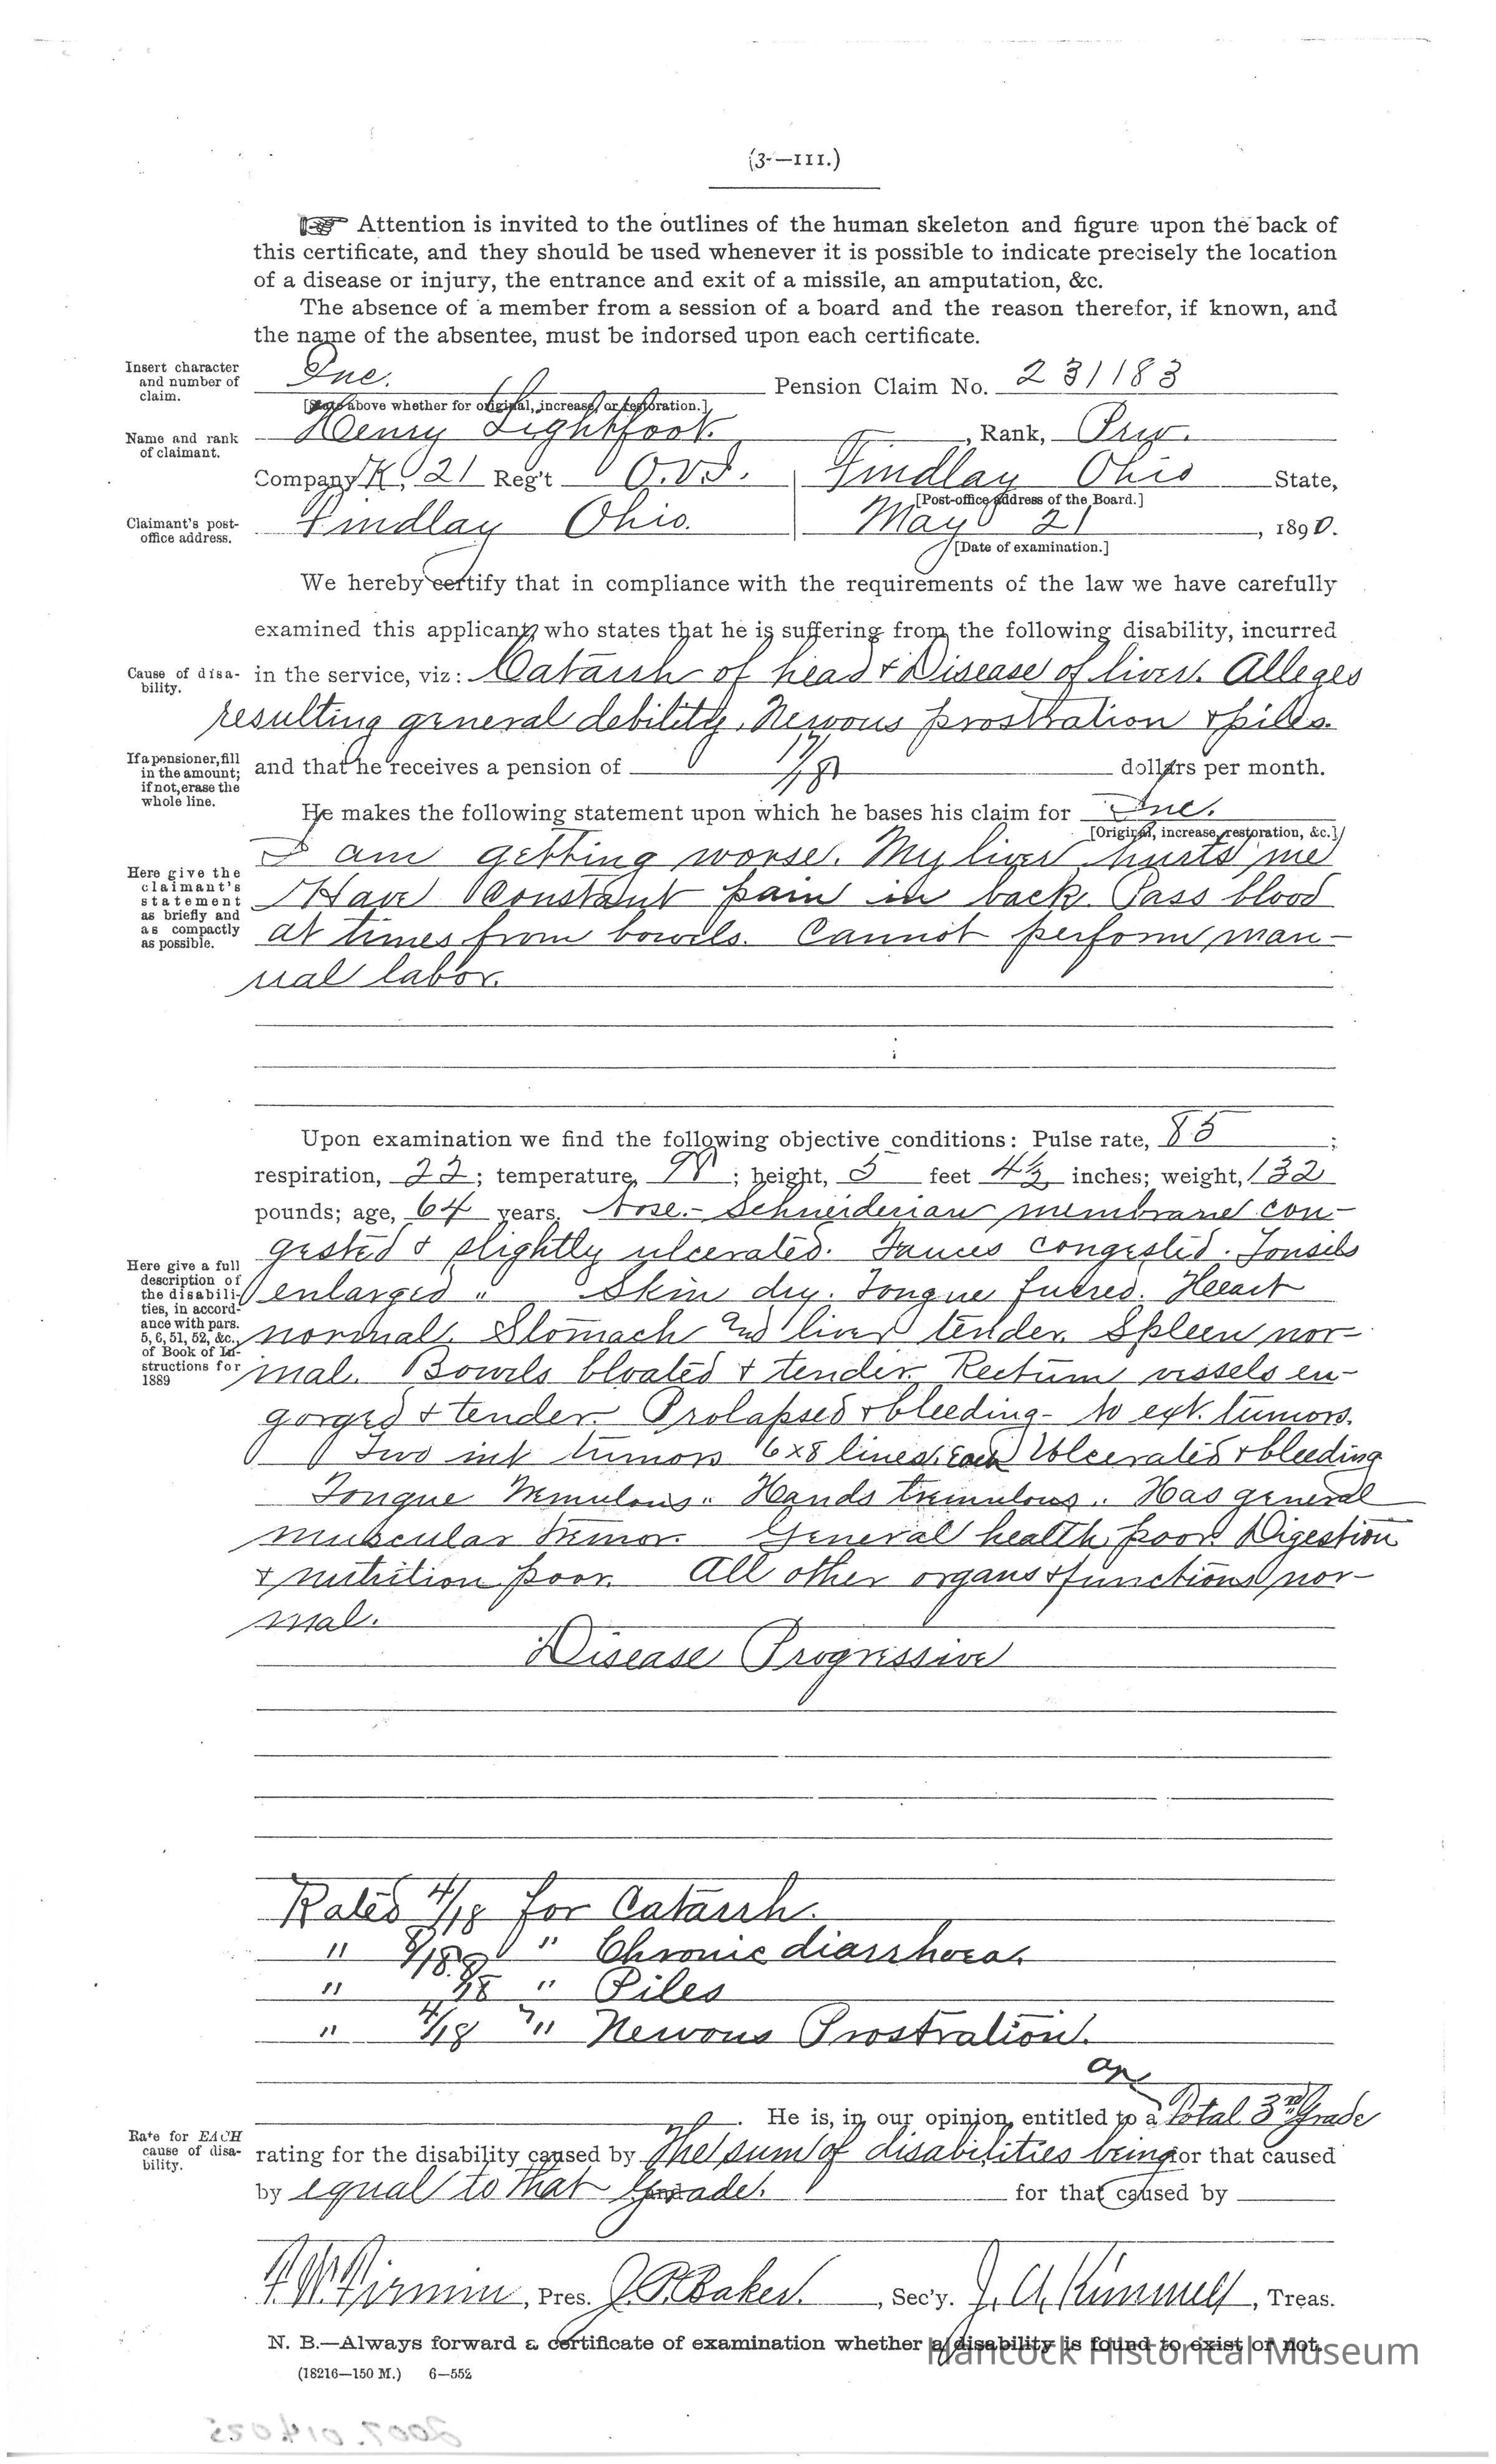 (3-—III.)
☞ Attention is invited to the outlines of the human skeleton and figure upon the back of
this certificate, and they should be used whenever it is possible to indicate precisely the location
of a disease or injury, the entrance and exit of a missile, an amputation, &c.
The absence of a member from a session of a board and the reason therefor, if known, and
the name of the absentee, must be indorsed upon each certificate.
Insert character and number of claim. Inc. Pension Claim No. 231183
[State above whether for original, increase, or restoration.]
Name and rank of claimant. Henry Lightfoot, Rank, Priv.
Company K, 21 Reg't O.V.I. Findlay Ohio State,
[Post-office address of the Board.]
Claimant's post-office address. Findlay Ohio. May 21, 1890.
[Date of examination.]
We hereby certify that in compliance with the requirements of the law we have carefully
examined this applicant, who states that he is suffering from the following disability, incurred
Cause of disability. in the service, viz: Catarrh of head & Disease of liver. Alleges
resulting general debility, Nervous prostration & piles.
If a pensioner, fill in the amount; if not, erase the whole line. and that he receives a pension of dollars per month.
He makes the following statement upon which he bases his claim for Inc.
[Original, increase, restoration, &c.]
Here give the claimant's statement as briefly and as compactly as possible. I am getting worse. My liver hurts me
Have constant pain in back. Pass blood
at times from bowels. Cannot perform man-
ual labor.
Upon examination we find the following objective conditions: Pulse rate, 85;
respiration, 22; temperature, 98; height, 5 feet 4½ inches; weight, 132
pounds; age, 64 years. Nose.- Schneiderian membrane con-
gested & slightly ulcerated. Fauces congested. Tonsils
Here give a full description of the disabilities, in accordance with pars. 5, 6, 51, 52, &c., of Book of Instructions for 1889 enlarged " Skin dry. Tongue furred. Heart
normal. Stomach and liver tender. Spleen nor-
mal. Bowels bloated & tender. Rectum vessels en-
gorged & tender. Prolapsed & bleeding - No ext. tumors.
Two int tumors 6x8 lines, each Ulcerated & bleeding
Tongue tremulous. Hands tremulous. Has general
muscular tremor. General health poor. Digestion
& nutrition poor. All other organs & functions nor-
mal.
Disease Progressive
Rated 4/18 for Catarrh.
" 8/18 " Chronic diarrhoea.
" " Piles
" 4/18 " Nervous Prostration.
He is, in our opinion, entitled to a Total 3rd Grade
Rate for EACH cause of disability. rating for the disability caused by The sum of disabilities being for that caused
by equal to that Grade. for that caused by
F. W. Firmin, Pres. J. P. Baker, Sec'y. J. A. Kimmell, Treas.
N. B.—Always forward a certificate of examination whether a disability is found to exist or not.
Hancock Historical Museum
(18216—150 M.) 6—552
2007.014.023